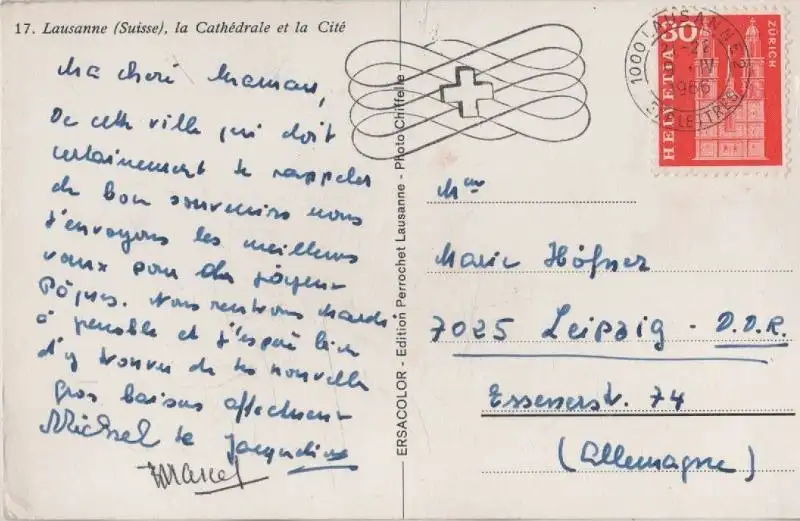 17. Lausanne (Suisse), la Cathédrale et la Cité
Ma chère Maman,
De cette ville qui doit
certainement te rappeler
de bon souvenirs nous
t'envoyons les meilleurs
vœux pour de joyeux
Pâques. Nous rentrons mardi
à Grenoble et j'espère bien
d'y trouver de tes nouvelles
gros baisers affectueux
Michel de Jacqueline
Marcel
ERSACOLOR - Edition Perrochet Lausanne - Photo Chiffelle
1000 LAUSANNE 2
-22
IV
1966
EXP. LETTRES
30
HELVETIA
ZÜRICH
Mme
Marie Höfner
7025 Leipzig - D.D.R.
Essenerstr. 74
(Allemagne)